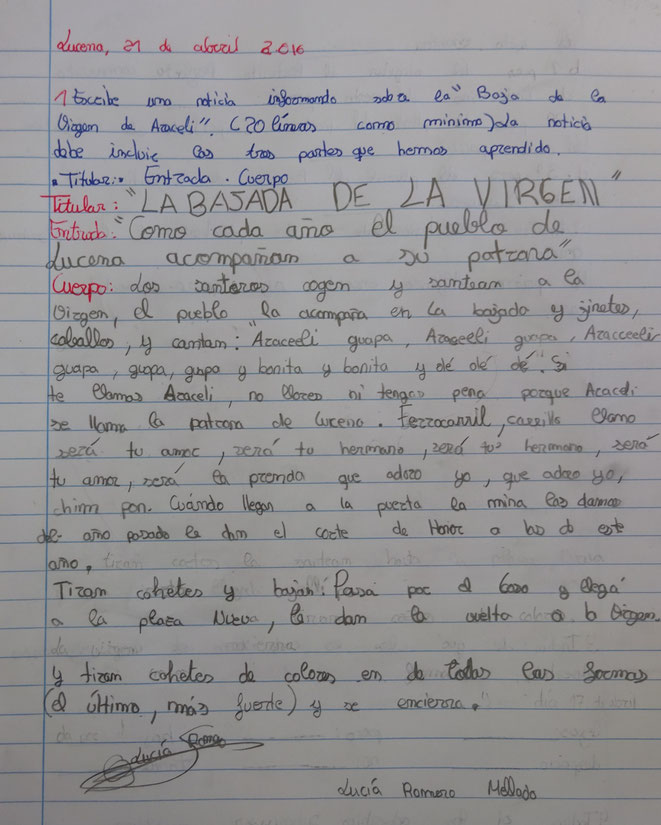 Lucena, 21 de abril 2.016
1 Escibe una noticia informando sobre la "Baja de la
Virgen de Araceli". (20 líneas como mínimo) La noticia
debe incluir las tres partes que hemos aprendido.
• Titular: Entrada. Cuerpo
Titular: "LA BAJADA DE LA VIRGEN"
Entrada: "Como cada año el pueblo de
Lucena acompañan a su patrona"
Cuerpo: Los santeros cogen y santean a la
Virgen, el pueblo la acompaña en la bajada y jinetes,
caballos, y cantan: "Araceeli guapa, Araceeli guapa, Araceeli
guapa, guapa, guapa y bonita y bonita y olé olé olé". Si
te llamas Araceli, no llores ni tengas pena porque Araceli
se llama la patrona de Lucena. Ferrocarril, carrils llano
será tu amor, será tu hermano, será tu hermano, será
tu amor, será la prenda que adoro yo, que adoro yo,
chim pon. Cuándo llegan a la puerta la mina las damas
del año pasado le dan el corte de Honor a las d este
año.
Tiran cohetes y bajan. Pasa por el y llega
a la plaza Nueva, le dan la vuelta a la Virgen.
y tiran cohetes de colores en de todas las formas
(el último, más fuerte) y se encierra."
Lucía Romero
Lucía Romero Mellado